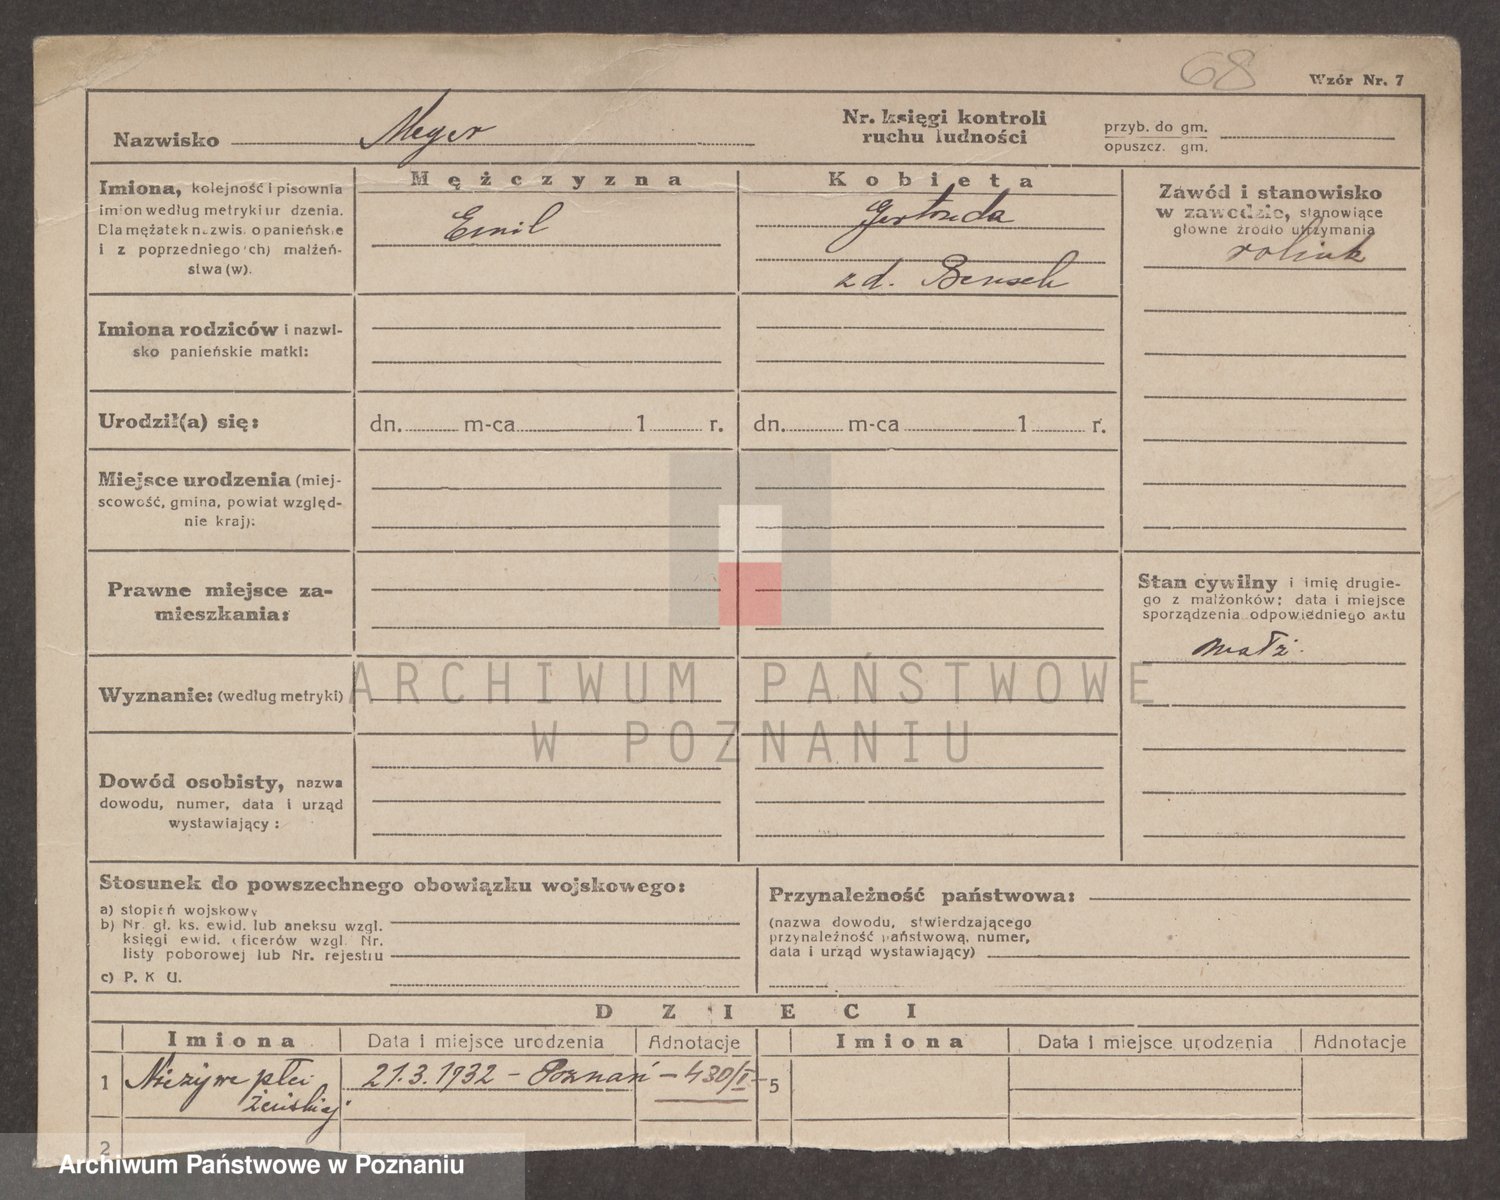 68
Wzór Nr. 7
Nazwisko Meyer
Nr. księgi kontroli
ruchu ludności
przyb. do gm.
opuszcz. gm.
Imiona, kolejność i pisownia
imion według metryki ur dzenia.
Dla mężatek nazwis. o panieńskie
i z poprzedniego (ch) małżeń-
stwa (w).
Mężczyzna
Emil
Kobieta
Gertruda
z d. Bensch
Zawód i stanowisko
w zawodzie, stanowiące
główne źródło utrzymania
rolnik
Imiona rodziców i nazwi-
sko panieńskie matki:
Urodził(a) się:
dn. m-ca 1 r.
dn. m-ca 1 r.
Miejsce urodzenia (miej-
scowość, gmina, powiat względ-
nie kraj):
Prawne miejsce za-
mieszkania:
Stan cywilny i imię drugie-
go z małżonków; data i miejsce
sporządzenia odpowiedniego aktu
małż.
Wyznanie: (według metryki)
Dowód osobisty, nazwa
dowodu, numer, data i urząd
wystawiający :
ARCHIWUM PAŃSTWOWE
W POZNANIU
Stosunek do powszechnego obowiązku wojskowego:
a) stopień wojskowy
b) Nr. gł. ks. ewid. lub aneksu wzgl.
księgi ewid. oficerów wzgl. Nr.
listy poborowej lub Nr. rejestru
c) P. K U.
Przynależność państwowa:
(nazwa dowodu, stwierdzającego
przynależność państwową, numer,
data i urząd wystawiający)
DZIECI
Imiona
Data i miejsce urodzenia
Adnotacje
Imiona
Data i miejsce urodzenia
Adnotacje
1 Nieżywe płci
żeńskiej
21.3.1932 – Poznań – 430/I –
5
2
Archiwum Państwowe w Poznaniu